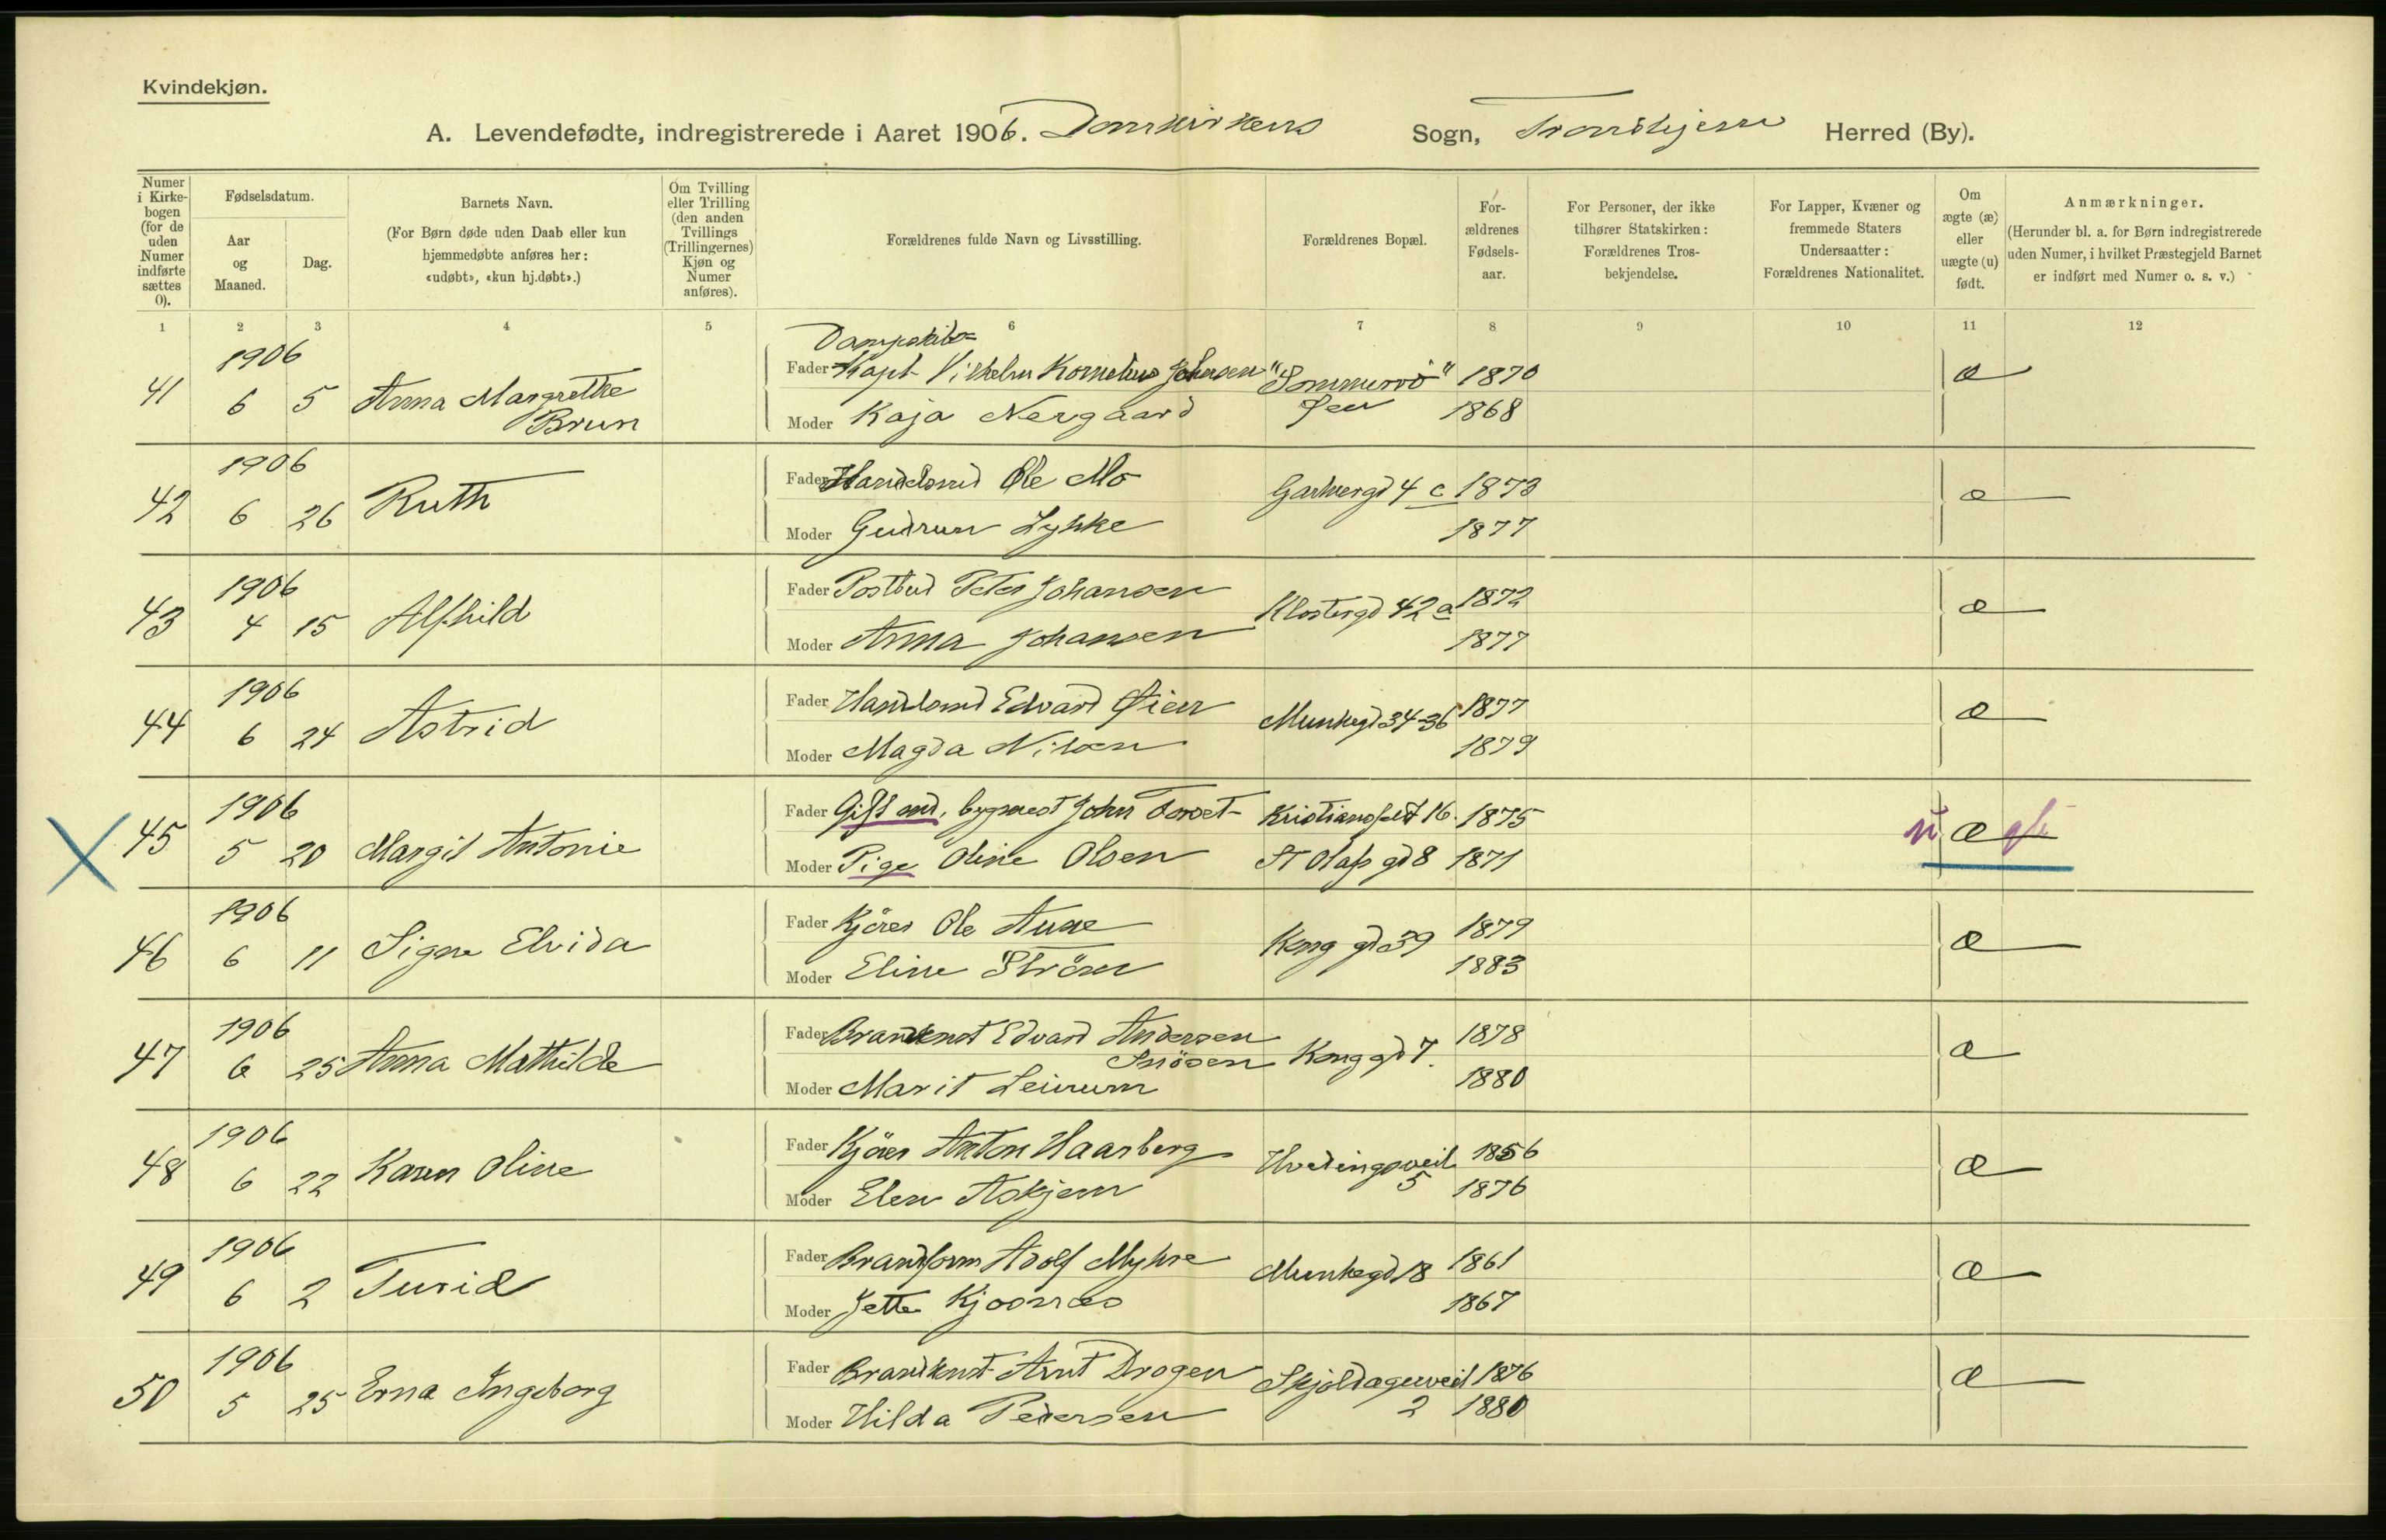 Kvindekjøn.
A. Levendefødte, indregistrerede i Aaret 1906. Domkirkens Sogn, Trondhjem Herred (By).
Numer i Kirke-bogen (for de uden Numer indførte sættes 0).
Fødselsdatum.
Aar og Maaned.
Dag.
Barnets Navn.
(For Børn døde uden Daab eller kun hjemmedøbte anføres her: «udøbt», «kun hj.døbt».)
Om Tvilling eller Trilling (den anden Tvillings (Trillingernes) Kjøn og Numer anføres).
Forældrenes fulde Navn og Livsstilling.
Forældrenes Bopæl.
For-ældrenes Fødsels-aar.
For Personer, der ikke tilhører Statskirken: Forældrenes Tros-bekjendelse.
For Lapper, Kvæner og fremmede Staters Undersaatter: Forældrenes Nationalitet.
Om ægte (æ) eller uægte (u) født.
Anmærkninger.
(Herunder bl. a. for Børn indregistrerede uden Numer, i hvilket Præstegjeld Barnet er indført med Numer o. s. v.)
1 2 3 4 5 6 7 8 9 10 11 12
1906 Dampskibs=
41 6 5 Anna Margrethe Brun Fader Kapt Vilhelm Kornelius Johnsen "Sommerro" 1870 æ
Moder Kaja Nergaard 1868
1906
42 6 26 Ruth Fader Handelsmd Ole Mo Garverg 4 c 1873 æ
Moder Gudrun Lykke 1877
1906
43 4 15 Alfhild Fader Postbud Peter Johansen Klostergd 42 a 1872 æ
Moder Anna Johansen 1877
1906
44 6 24 Astrid Fader Handlsmd Edvard Øien Munkegd 34-36 1877 æ
Moder Magda Nilsen 1879
1906
45 5 20 Margit Antonie Fader Gift md, bygmest John Forset Kristiansfeldt 16. 1875 u ægte
Moder Pige Oline Olsen St Olafs gd 8 1871
1906
46 6 11 Signe Elvida Fader Kjører Ole Aune Kong gd 39 1879 æ
Moder Eline Ström 1883
1906
47 6 25 Anna Mathilde Fader Brandkonst Edvard Andersen Snösen Kong gd 7. 1878 æ
Moder Marit Leirum 1880
1906
48 6 22 Karen Oline Fader Kjörer Anton Haarberg Hvedingsveit 5 1856 æ
Moder Elen Askjem 1876
1906
49 6 2 Turid Fader Brandform Adolf Myhre Munkegd 18 1861 æ
Moder Jette Kjosnæs 1867
1906
50 5 25 Erna Ingeborg Fader Brandkonst Arnt Drogen Skjoldagerveit 2 1876 æ
Moder Hilda Pedersen 1880